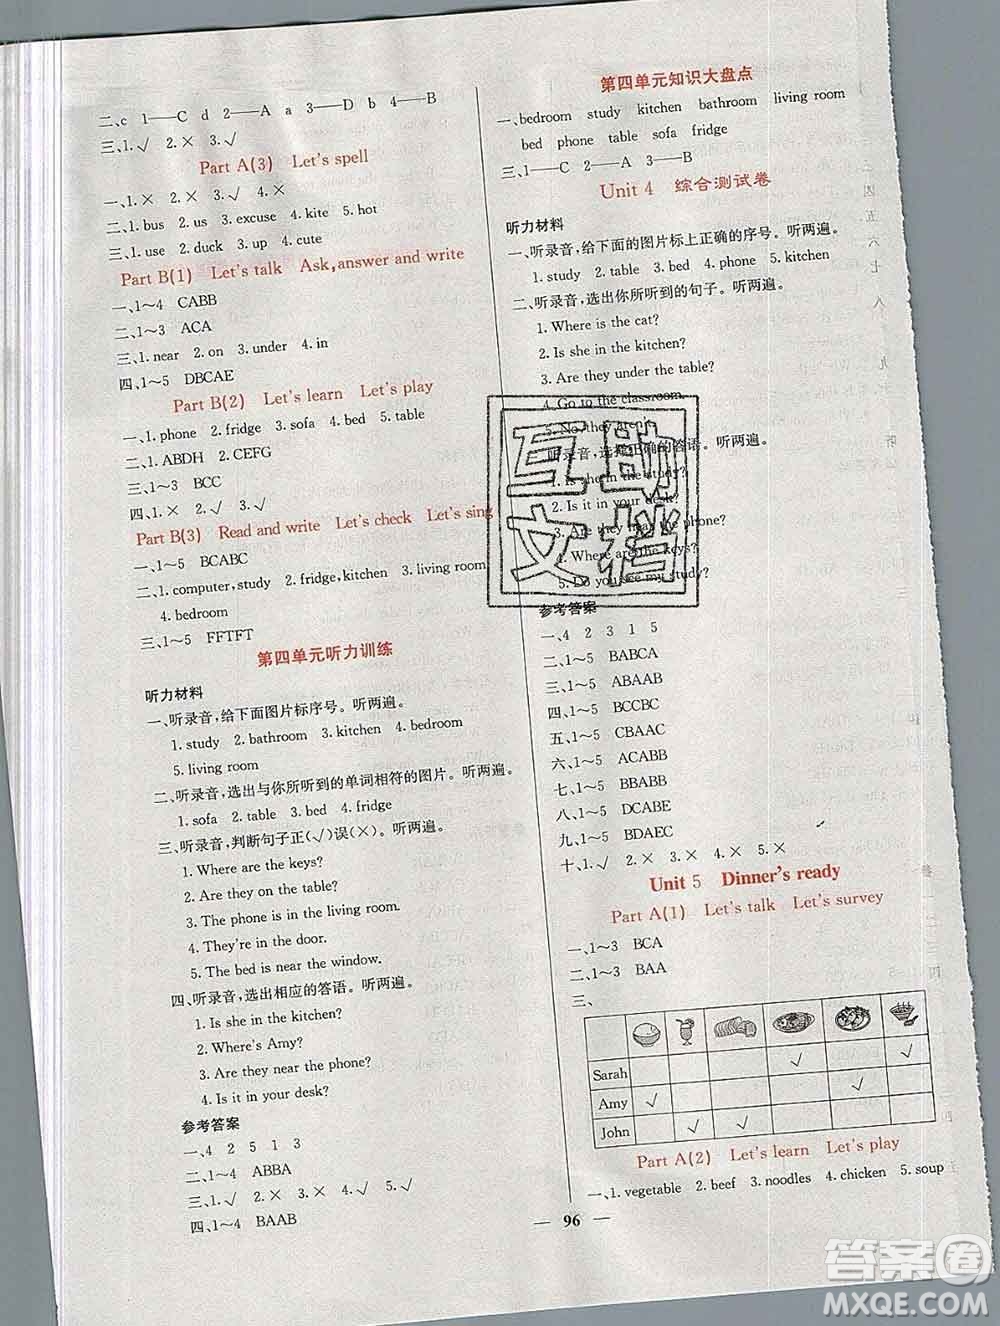 二、c 1——C d 2——A a 3——D b 4——B
三、1.√ 2.× 3.√
Part A(3) Let's spell
一、1.× 2.× 3.√ 4.×
二、1. bus 2. us 3. excuse 4. kite 5. hot
三、1. use 2. duck 3. up 4. cute
Part B(1) Let's talk Ask,answer and write
一、1～4 CABB
二、1～3 ACA
三、1. near 2. on 3. under 4. in
四、1～5 DBCAE
Part B(2) Let's learn Let's play
一、1. phone 2. fridge 3. sofa 4. bed 5. table
二、1. ABDH 2. CEFG
三、1～3 BCC
四、1.√ 2.× 3.√
Part B(3) Read and write Let's check Let's sing
一、1～5 BCABC
二、1. computer,study 2. fridge,kitchen 3. living room
4. bedroom
三、1～5 FFTFT
第四单元听力训练
听力材料
一、听录音,给下面图片标序号。听两遍。
1. study 2. bathroom 3. kitchen 4. bedroom
5. living room
二、听录音,选出与你所听到的单词相符的图片。听两遍。
1. sofa 2. table 3. bed 4. fridge
三、听录音,判断句子正(√)误(×)。听两遍。
1. Where are the keys?
2. Are they on the table?
3. The phone is in the living room.
4. They're in the door.
5. The bed is near the window.
四、听录音,选出相应的答语。听两遍。
1. Is she in the kitchen?
2. Where's Amy?
3. Are they near the phone?
4. Is it in your desk?
参考答案
一、4 2 5 1 3
二、1～4 ABBA
三、1.√ 2.× 3.× 4.√ 5.√
四、1～4 BAAB
第四单元知识大盘点
一、bedroom study kitchen bathroom living room
bed phone table sofa fridge
三、1——C 2——A 3——B
Unit 4 综合测试卷
听力材料
一、听录音,给下面的图片标上正确的序号。听两遍。
1. study 2. table 3. bed 4. phone 5. kitchen
二、听录音,选出你所听到的句子。听两遍。
1. Where is the cat?
2. Is she in the kitchen?
3. Are they under the table?
4. Go to the classroom.
5. No, they aren't.
三、听录音,选择正确的答语。听两遍。
1. Is she in the study?
2. Is it in your desk?
3. Are they near the phone?
4. Where are the keys?
5. Do you see my study?
参考答案
一、4 2 3 1 5
二、1～5 BABCA
三、1～5 ABAAB
四、1～5 BCCBC
五、1～5 CBAAC
六、1～5 ACABB
七、1～5 BBABB
八、1～5 DCABE
九、1～5 BDAEC
十、1.√ 2.× 3.× 4.× 5.×
Unit 5 Dinner's ready
Part A(1) Let's talk Let's survey
一、1～3 BCA
二、1～3 BAA
三、
Sarah √ √
Amy √ √
John √ √
Part A(2) Let's learn Let's play
一、1. vegetable 2. beef 3. noodles 4. chicken 5. soup
— 96 —
互助
文档
答案圈
MXQE.COM